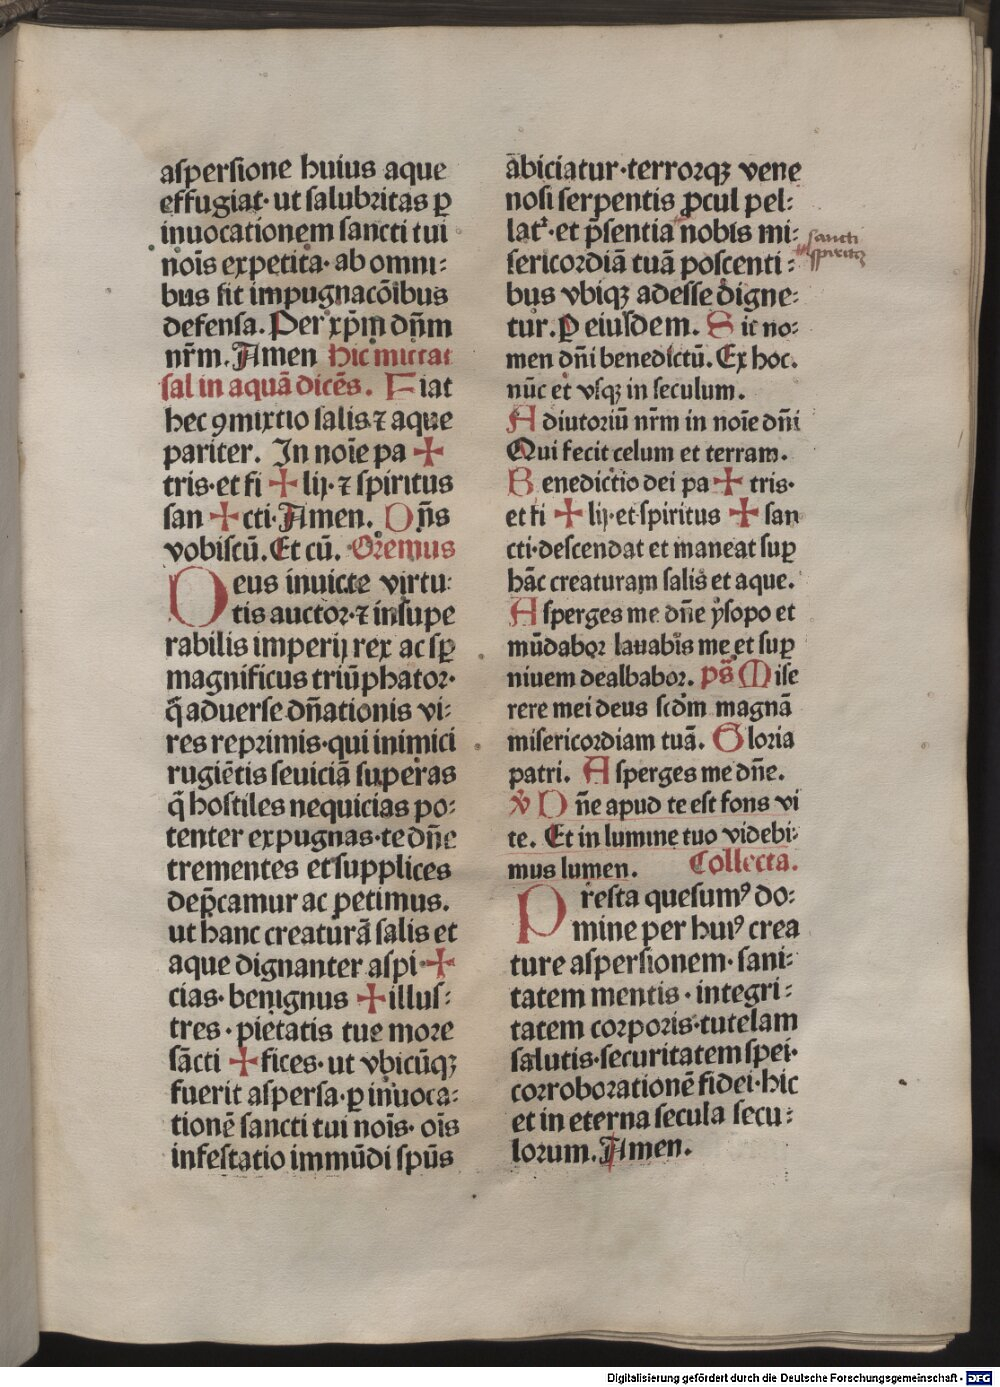 aſperſione huius aque
effugiat· ut ſalubritas ꝑ
inuocationem ſancti tui
noīs expetita· ab omni⸗
bus ſit impugnacōibus
defenſa. Per xp̄m dn̄m
nr̄m. Amen Hic mittat
ſal in aquā dicēs. Fiat
hec ꝯmixtio ſalis ⁊ aque
pariter. In noīe pa ✠
tris· et fi ✠ lij· ⁊ ſpiritus
ſan ✠ cti· Amen. Dn̄s
vobiſcū. Et cū. Oremus
Deus inuicte virtu⸗
tis auctor· ⁊ inſupe
rabilis imperij rex ac ſꝑ
magnificus triūphator·
q̄ aduerſe dn̄ationis vi⸗
res reprimis· qui inimici
rugiētis ſeuiciā ſuperas
q̄ hoſtiles nequicias po⸗
tenter expugnas· te dn̄e
trementes et ſupplices
dep̄camur ac petimus.
ut hanc creaturā ſalis et
aque dignanter aſpi ✠
cias· benignus ✠ illuſ⸗
tres · pietatis tue more
ſācti ✠ fices· ut vbicūqꝫ
fuerit aſperſa· ꝑ inuoca⸗
tionē ſancti tui noīs· oīs
infeſtatio immūdi ſpūs
abiciatur· terrorqꝫ vene
noſi ſerpentis ꝓcul pel⸗
lat᷑· et p̄ſentia nobis mi⸗
ſancti
ſpiritꝰ
ſericordiā tuā poſcenti⸗
bus vbiqꝫ adeſſe digne⸗
tur. ꝑ eiuſdem. Sit no⸗
men dn̄i benedictū. Ex hoc.
nūc et vſqꝫ in ſeculum.
Adiutoriū nr̄m in noīe dn̄i
Qui fecit celum et terram.
Benedictio dei pa ✠ tris·
et fi ✠ lij· et ſpiritus ✠ ſan
cti· deſcendat et maneat ſuꝑ
hāc creaturam ſalis et aque.
Aſperges me dn̄e yſopo et
mūdabor lauabis me et ſuꝑ
niuem dealbabor. ps̄ Miſe
rere mei deus ſcdm̄ magnā
miſericordiam tuā. Gloria
patri. Aſperges me dn̄e.
℣ Dn̄e apud te eſt fons vi
te. Et in lumine tuo videbi⸗
mus lumen. Collecta.
Preſta queſumꝰ do⸗
mine per huiꝰ crea
ture aſperſionem· ſani⸗
tatem mentis · integri⸗
tatem corporis· tutelam
ſalutis· ſecuritatem ſpei·
corroborationē fidei· hic
et in eterna ſecula ſecu⸗
lorum. Amen.
Digitalisierung gefördert durch die Deutsche Forschungsgemeinschaft - DFG